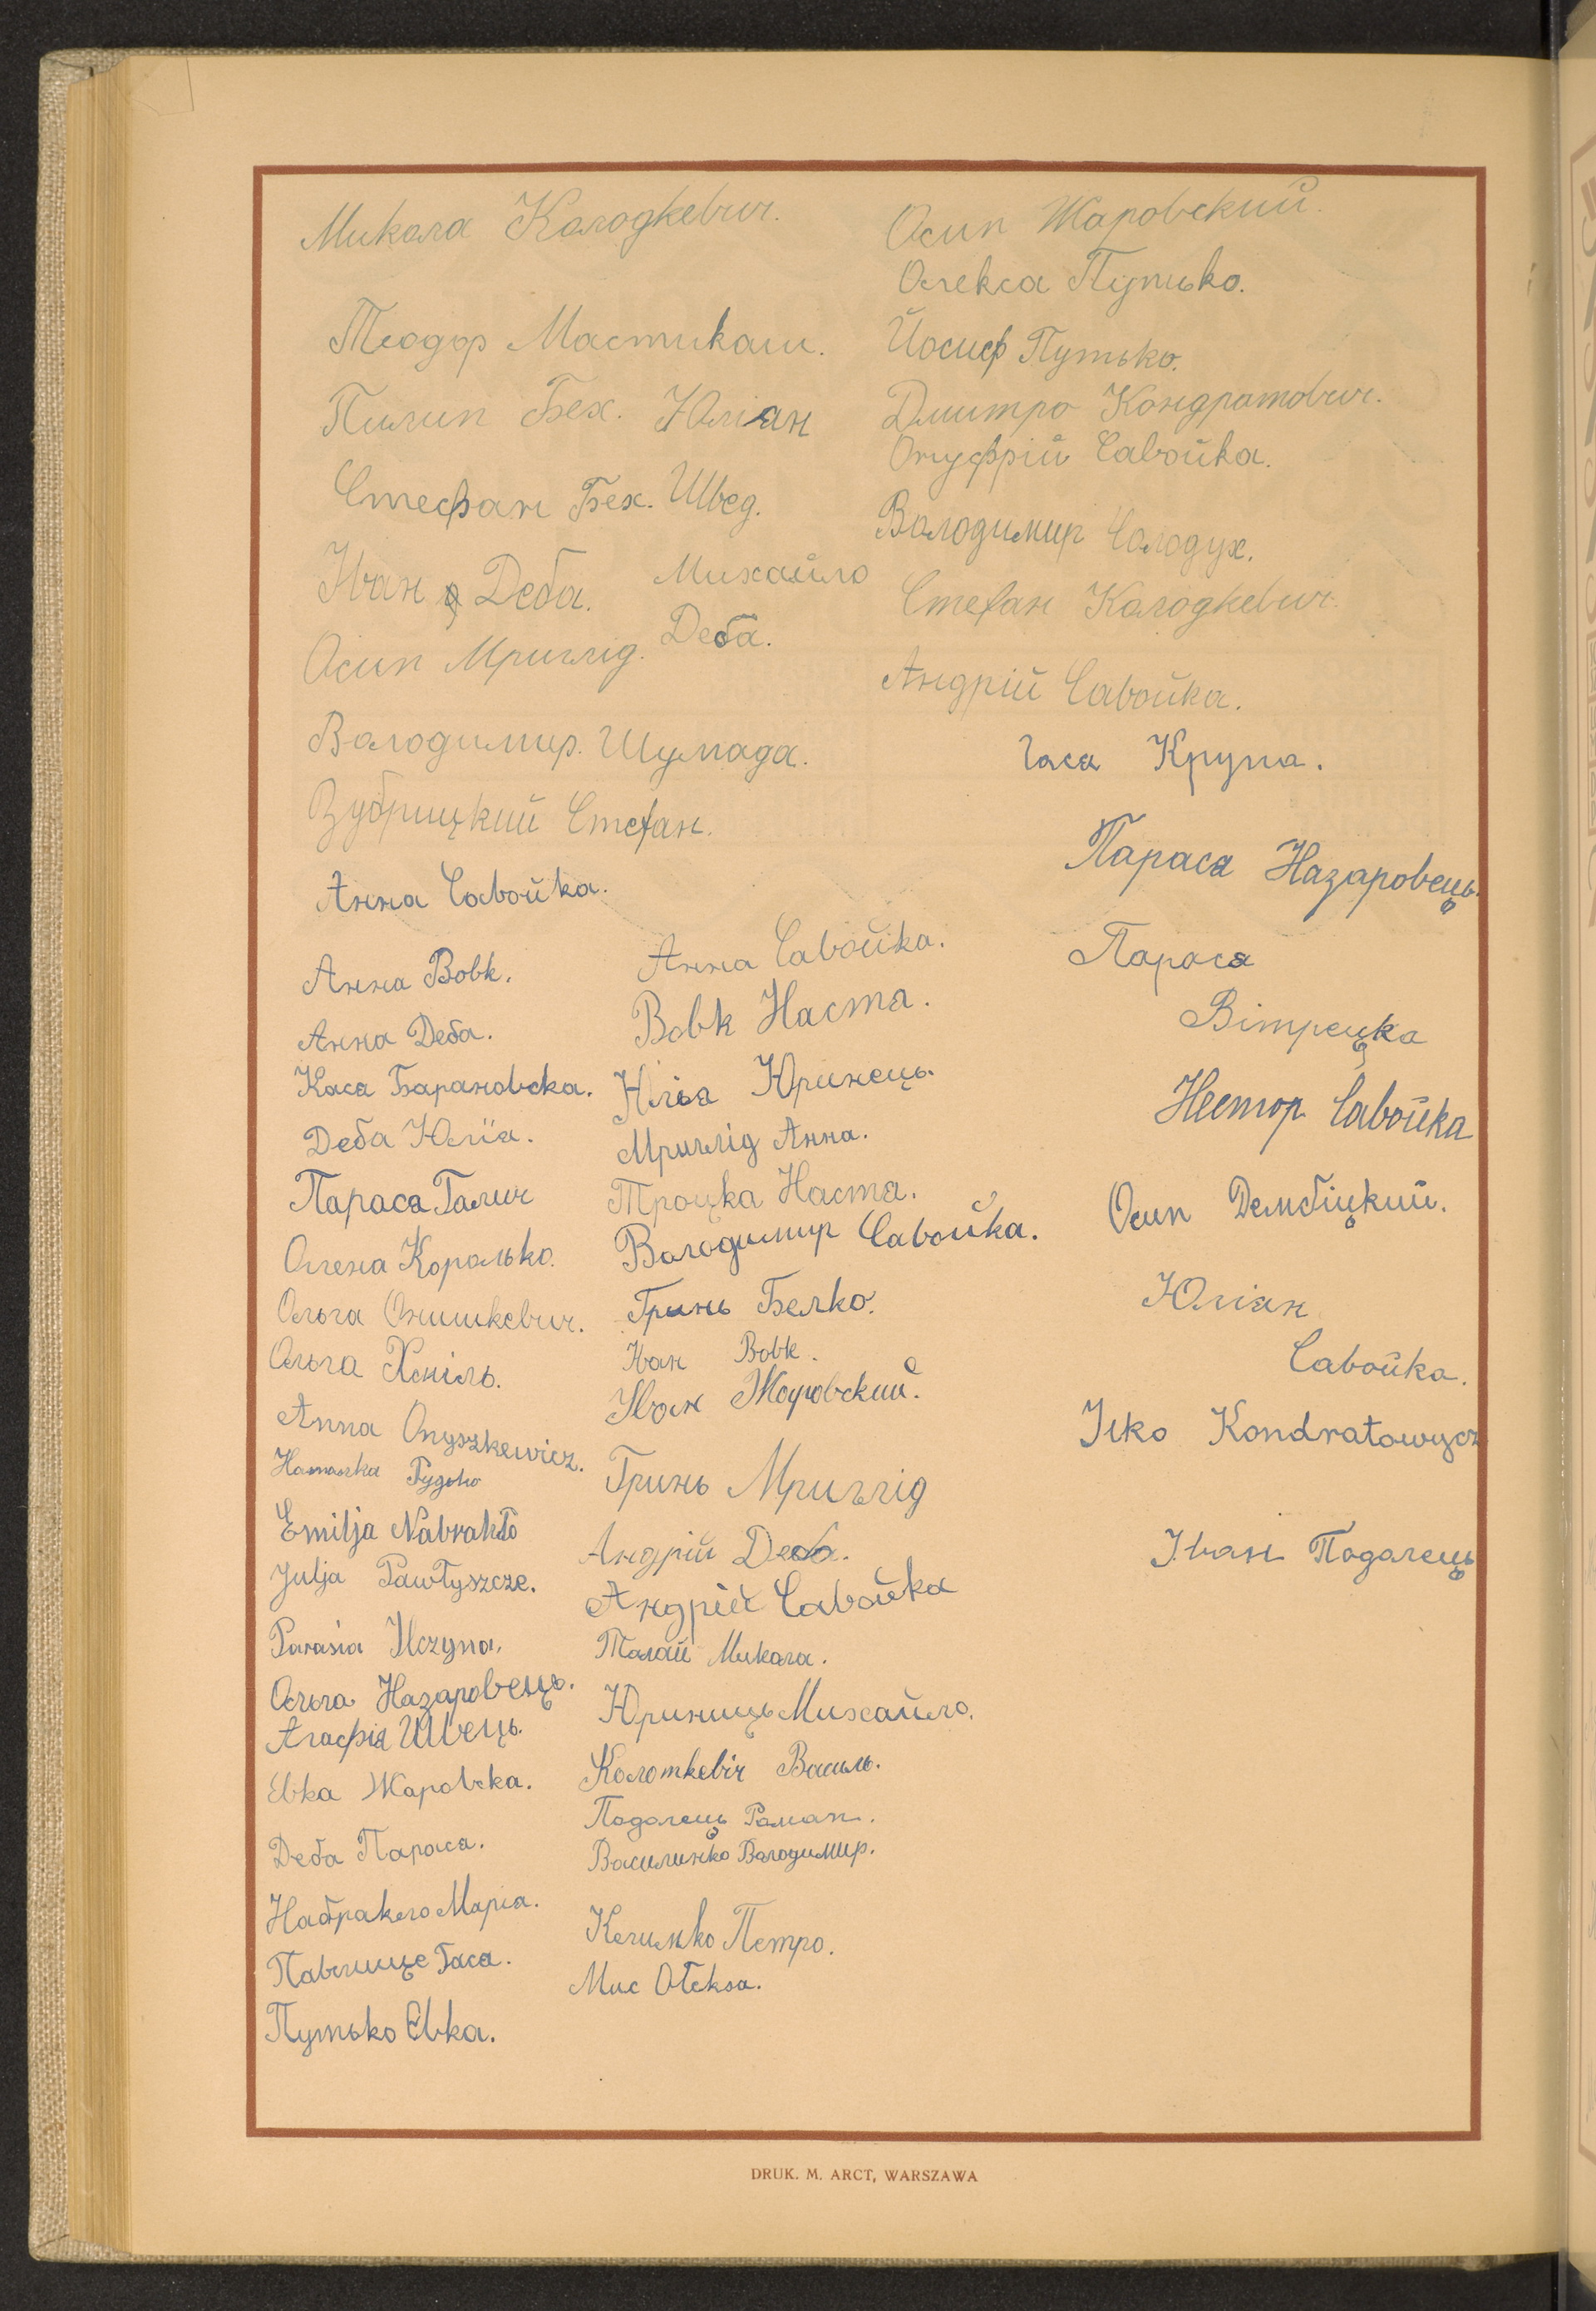 Микола Колодкевич.
Теодор Мастикаш.
Пилип Бех. Юліан
Стефан Бех. Швед.
Іван Деба. Михайло
Деба.
Осип Мриглід.
Володимир. Шумада.
Зубрицкий Стефан.
Анна Савойка.
Осип Жаровский.
Олекса Путько.
Йосиф Путько.
Дмитро Кондратович.
Онуфрій Савойка.
Володимир Солодух.
Стефан Колодкевич.
Андрій Савойка.
Гася Крупа.
Парася Назаровець.
Парася
Вітрецка
Нестор Савойка
Осип Дембіцкий.
Юліян
Савойка.
Ilko Kondratowycz
Іван Подолець
Анна Вовк.
Анна Деба.
Кася Барановска.
Деба Юлїя.
Парася Галич
Олена Королько.
Ольга Онишкевич.
Ольга Хміль.
Anna Onyszkewicz.
Наталка
Emilja Nabrahło
Julja Pawłyszcze.
Parasia Ilczyna.
Ольга Назаровець.
Агафія Швець.
Евка Жаровска.
Деба Парася.
Набракло Марія.
Павлище Гася.
Путько Евка.
Анна Савойка.
Вовк Настя.
Юлья Юринець.
Мриглід Анна.
Троцка Настя.
Володимир Савойка.
Гринь Белко.
Іван Вовк.
Іван Жоровский.
Гринь Мриглід
Андрій Деба.
Андрій Савойка
Талай Микола.
Юриниць Михайло.
Коломкевіч Василь.
Подолець Роман.
Василинко Володимир.
Петро.
Мис Ołeksa.
DRUK. M. ARCT, WARSZAWA